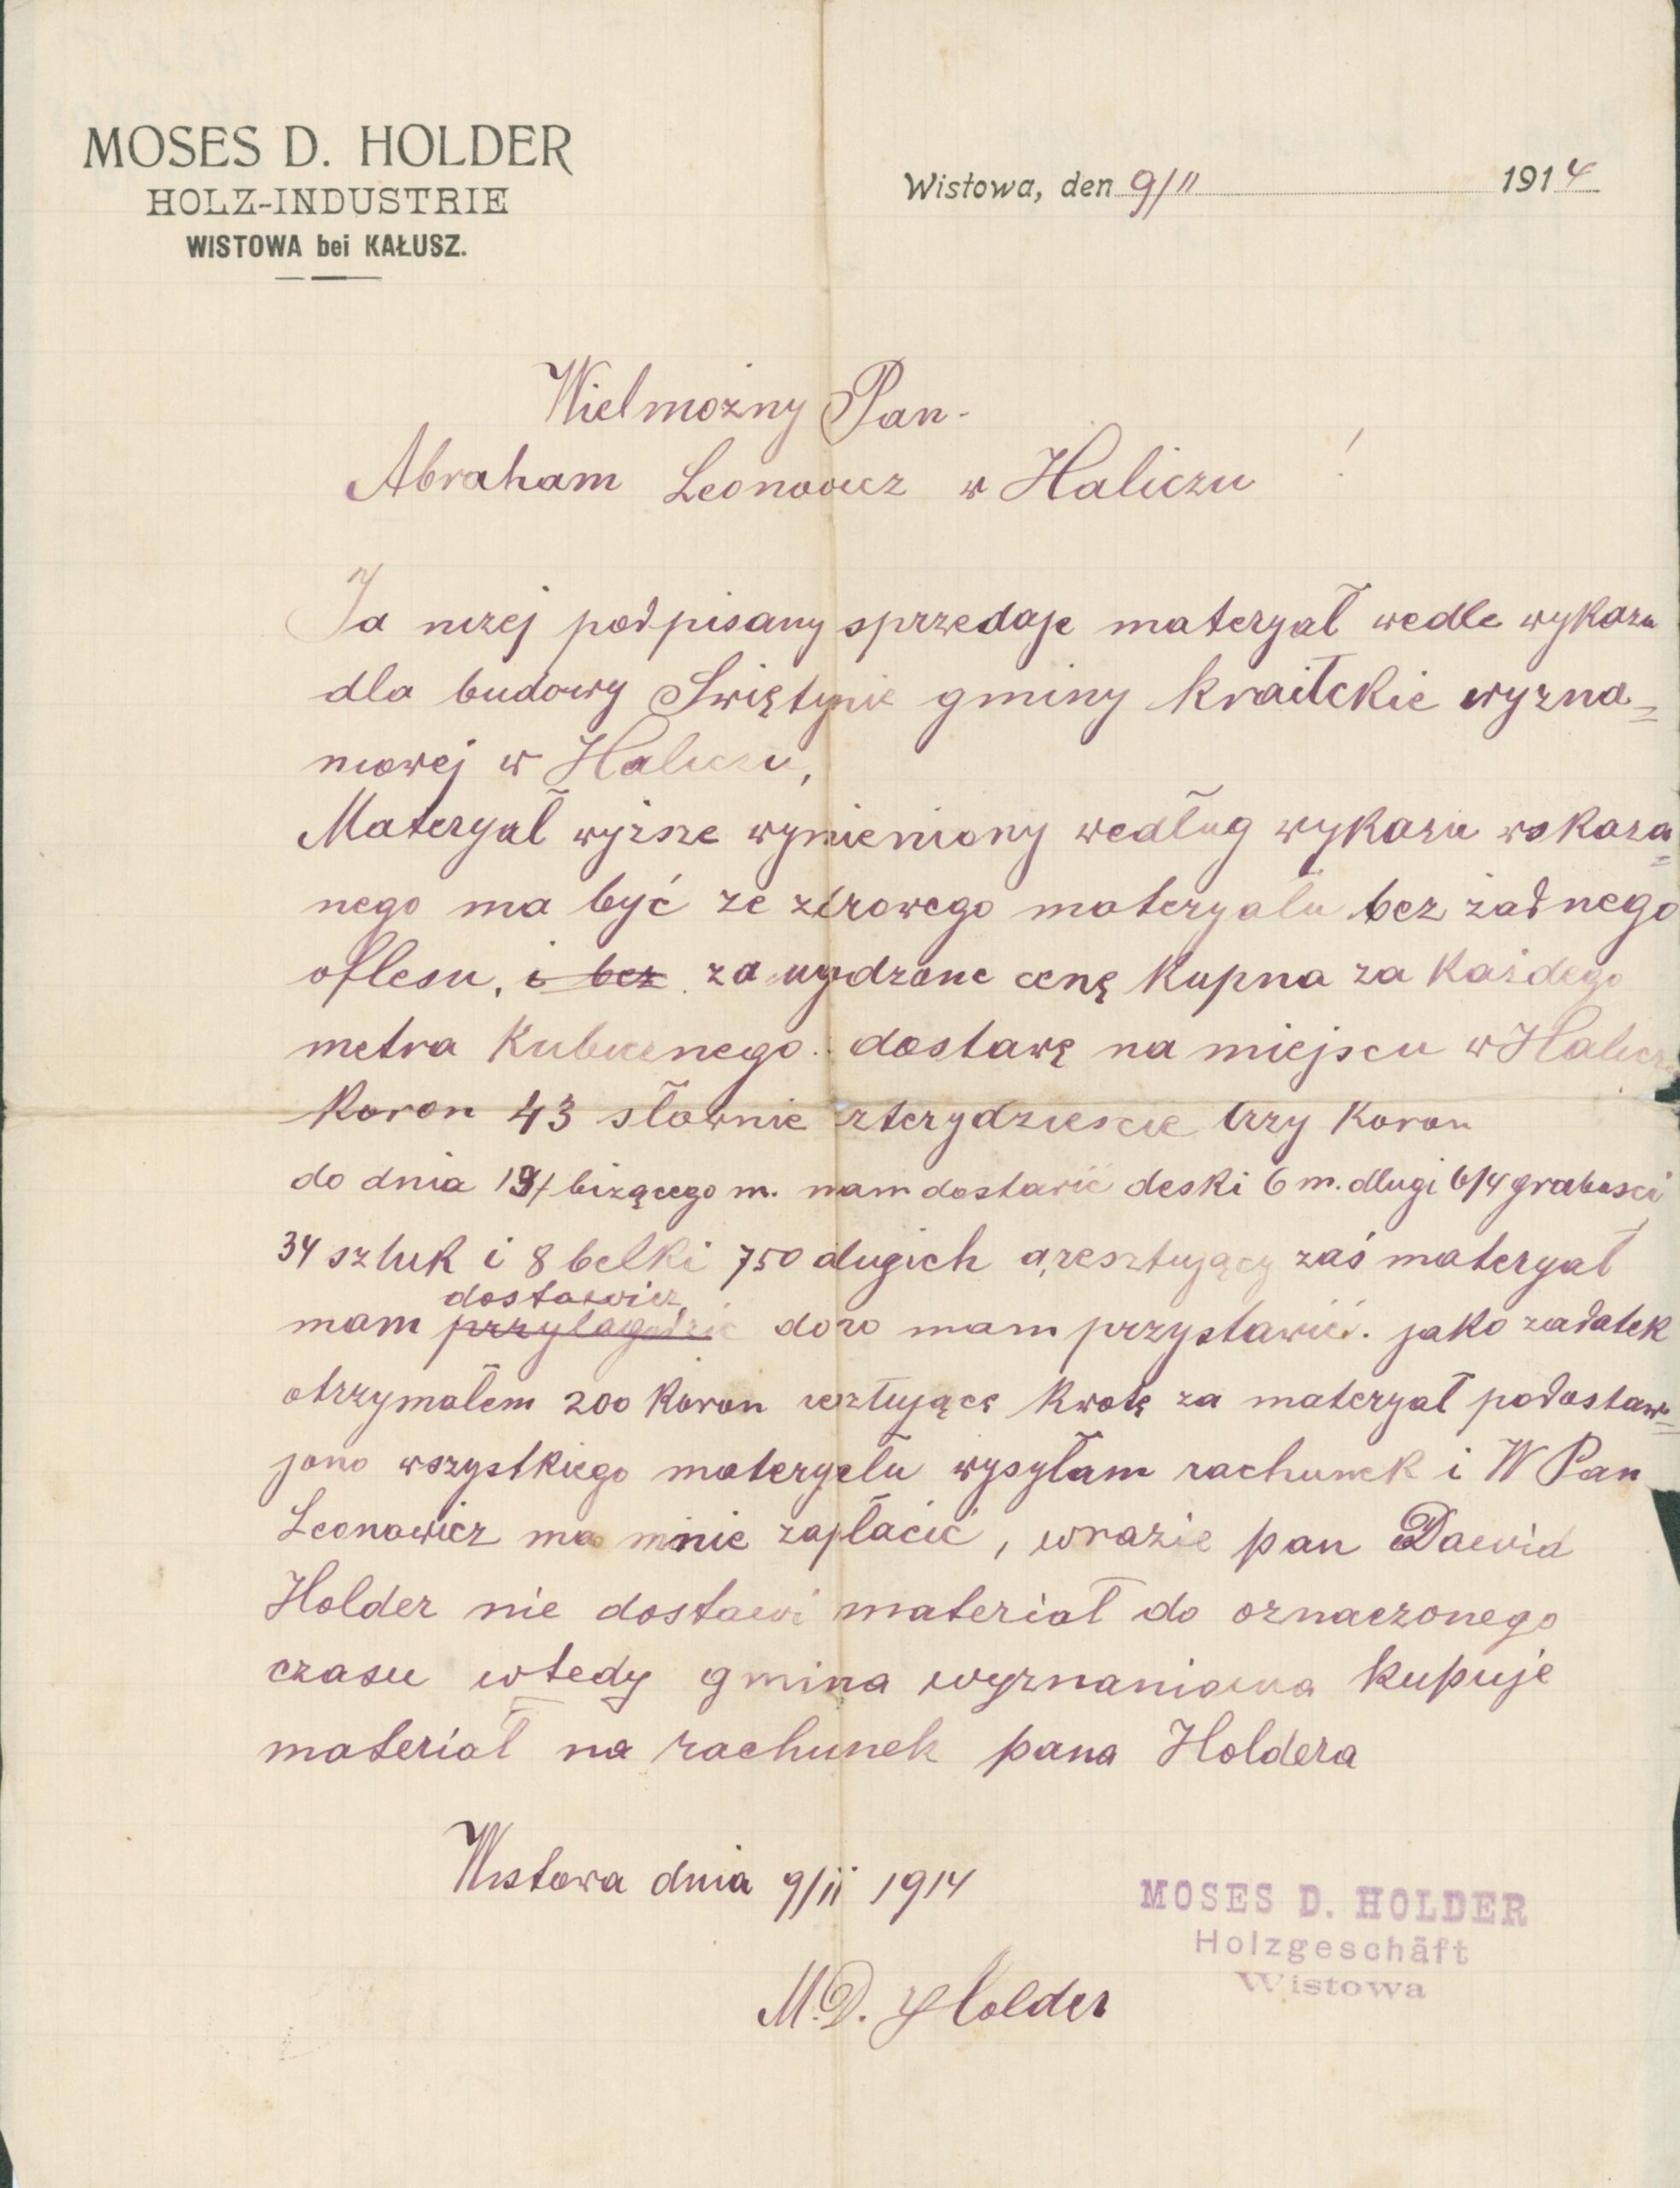 MOSES D. HOLDER
HOLZ-INDUSTRIE
WISTOWA bei KAŁUSZ.
Wistowa, den 9/II 1914
Wielmożny Pan
Abraham Leonowicz w Haliczu !
Ja niżej podpisany sprzedaje materyał wedle wykazu
dla budowy Swiętynie gminy kraitckie wyzna=
niowej w Haliczu,
Materyał wyższe wymieniony według wykazu wskaza=
nego ma być ze zdrowego materyalu bez żadnego
oflesu, i bez za ugodzone cenę kupna za każdego
metra kubicznego dostawę na miejscu w Halicz
Koron 43 słownie czterydziescie trzy Koron
do dnia 19/ biżącego m. mam dostavić deski 6 m. dlugi 6/4 grubosci
34 sztuk i 8 belki 750 dlugich a resztujący zaś materyał
dostawicz
mam mam przystawić. jako zadatek
otrzymałem 200 Koron resztującę kwotę za materyał podostaw=
jono wszystkiego materyału wysyłam rachunek i W Pan
Leonowicz ma mnie zapłacić, wrazie pan Dawid
Holder nie dostawi materiał do oznaczonego
czasu wtedy gmina wyznaniowa kupuje
materiał na rachunek pana Holdera
Wistowa dnia 9/II 1914
MOSES D. HOLDER
Holzgeschäft
Wistowa
M. D. Holder